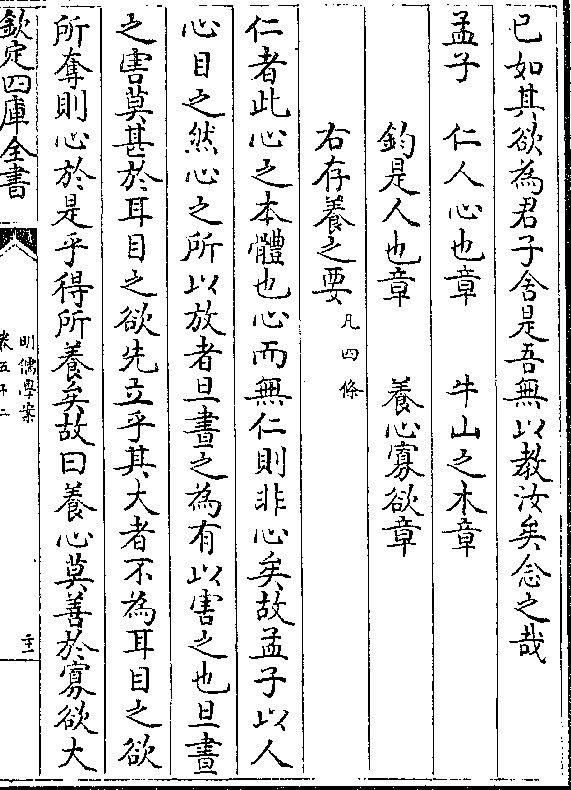 已如其欲為君子舍是吾無以教汝矣念之哉
孟子　仁人心也章　牛山之木章
鈞是人也章　養心寡欲章
右存養之要凡四條
仁者此心之本體也心而無仁則非心矣故孟子以人
心目之然心之所以放者旦晝之為有以害之也旦晝
之害莫甚於耳目之欲先立乎其大者不為耳目之欲
所奪則心於是乎得所養矣故曰養心莫善於寡欲大
欽定四庫全書
明儒學案
卷五十二